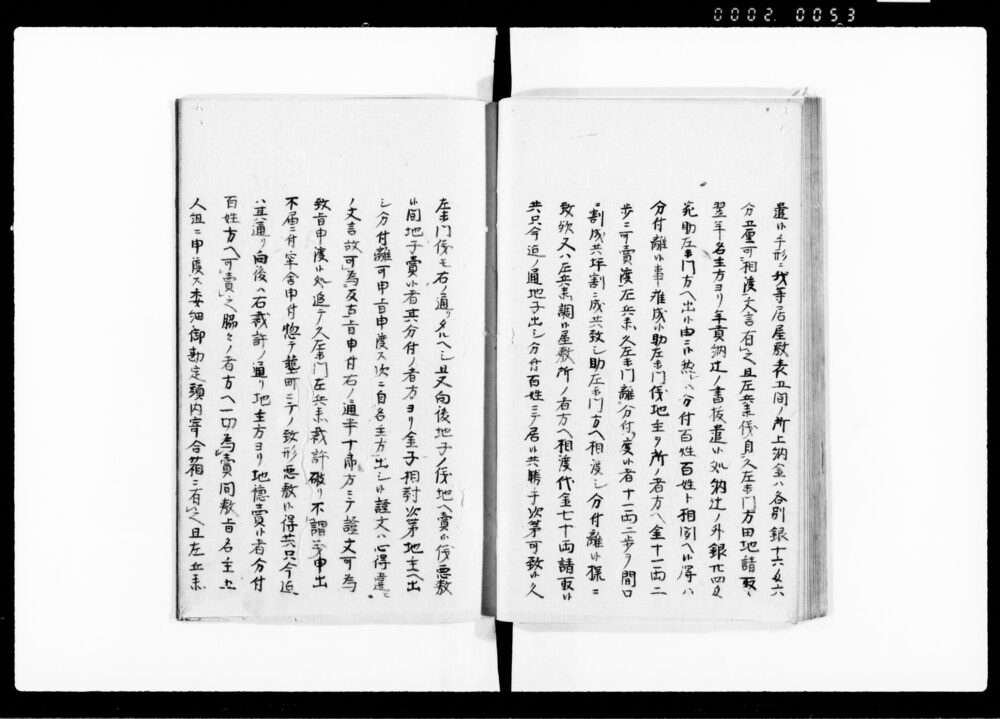 0002 0053
遣シ候手形ニ我等居屋敷表五間ノ所上納金ハ各別銀十六匁六
分五厘可相渡ト文言有之且左兵衛儀自久左衛門方田地請取
翌年名主方ヨリ年貢納辻ノ書抜遣候処納辻ノ外銀廿四匁
宛助左衛門方ヘ出候由ニ候然ハ分付百姓百姓ト相聞ヘ候得ハ
分付離候事難成候助左衛門儀地主ノ所ノ者方ヘ金十一両二
歩ニ可賣渡左兵衛久左衛門離分付度候者十一両二歩ヲ間口
割成共坪割ニ成共致シ助左衛門方ヘ相渡シ分付離候様ニ
致歟又ハ左兵衛調候屋敷所ノ者方ヘ相渡代金七十両請取候
共只今迄ノ通地子出シ分付百姓ニテ居候共勝手次第可致候久
左衛門儀モ右ノ通タルヘシ且又向後地子ノ儀地ヘ賣候儀悪敷
候間地子賣候者其分付ノ者方ヨリ金子相対次第地主ヘ出
シ分付離可申旨申渡ス次ニ自名主方出シ候證文ハ心得違
ノ文言故可為反古旨申付右ノ通半十郎方ニテ證文可為
致旨申渡候処追テ久左衛門左兵衛裁許破リ不謂事申出
不届ニ付牢舎申付惣テ町ニテノ致形悪敷候得共只今迄
ハ其通リ向後ハ右裁許ノ通リ地主方ヨリ地賣候者分付
百姓方ヘ可賣之脇々ノ者方ヘ一切為賣間敷旨名主五
人組ニ申渡ス委細御勘定頭内寄合箱ニ有之且左兵衛